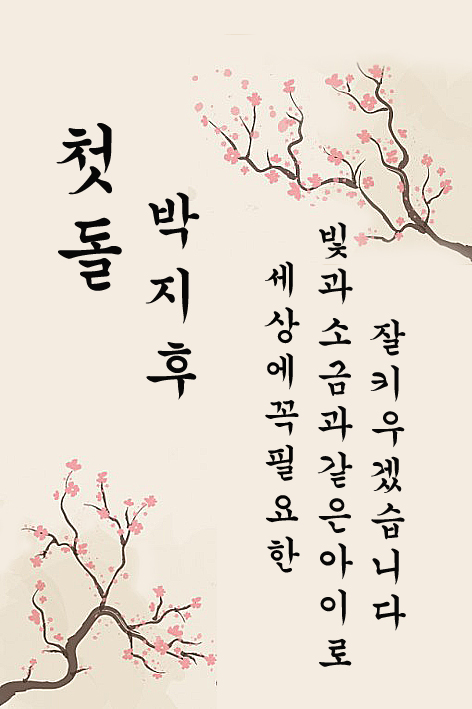 첫돌
박지후
세상에꼭필요한
빛과소금과같은아이로
잘키우겠습니다